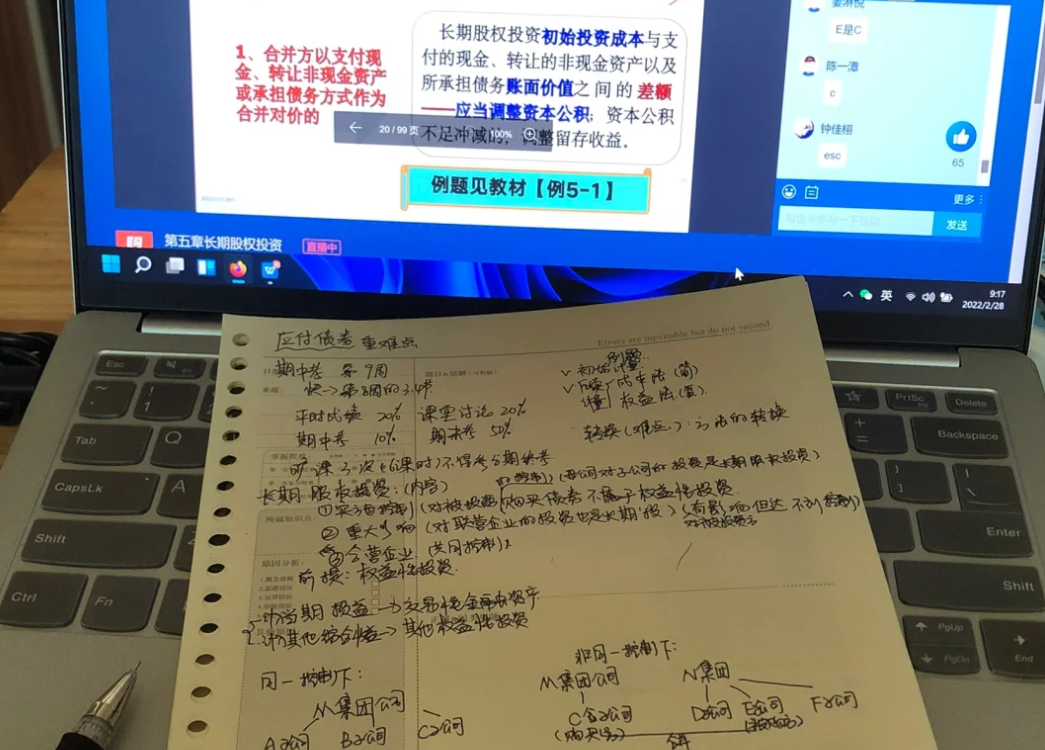 1、合并方以支付现
金、转让非现金资产
或承担债务方式作为
合并对价的
长期股权投资初始投资成本与支
付的现金、转让的非现金资产以及
所承担债务账面价值之间的差额
——应当调整资本公积；资本公积
不足冲减的，调整留存收益．
20 / 99 页
100%
例题见教材【例5-1】
E是C
陈一潭
c
钟佳栩
esc
65
更多
发送
第五章长期股权投资
直播中
英
9:17
2022/2/28
Errors are inevitable but do not second
应付债券 重难点
期中考 第9周
快→第8周的3.4节
平时成绩 20% 课堂讨论 20%
期中考 10% 期末考 50%
初始计量
后续
计量
成本法(简)
权益法(复)
转换(难点)：方法的转换
旷课3次(6课时)不得参与期末考
长期股权投资：(内容)
(母公司对子公司的投资是长期股权投资)
①实施控制
购买债券不属于权益性投资．
②重大影响 (对联营企业的投资也是长期股投)
③合营企业 (共同控制)
前提：权益性投资．
所属知识点：
原因分析：
1.计当期损益→交易性金融资产
2.计其他综合收益→其他权益性投资
同一控制下：
M集团公司
A公司 B公司 C公司
非同一控制下：
M集团公司 N集团
C公司 D公司 E公司 F公司
(购买方)
Esc
PrtSc
Delete
Tab
Q
Backspace
CapsLk
A
Enter
Shift
Shift
Ctrl
Fn
PgUp
PgDn
End